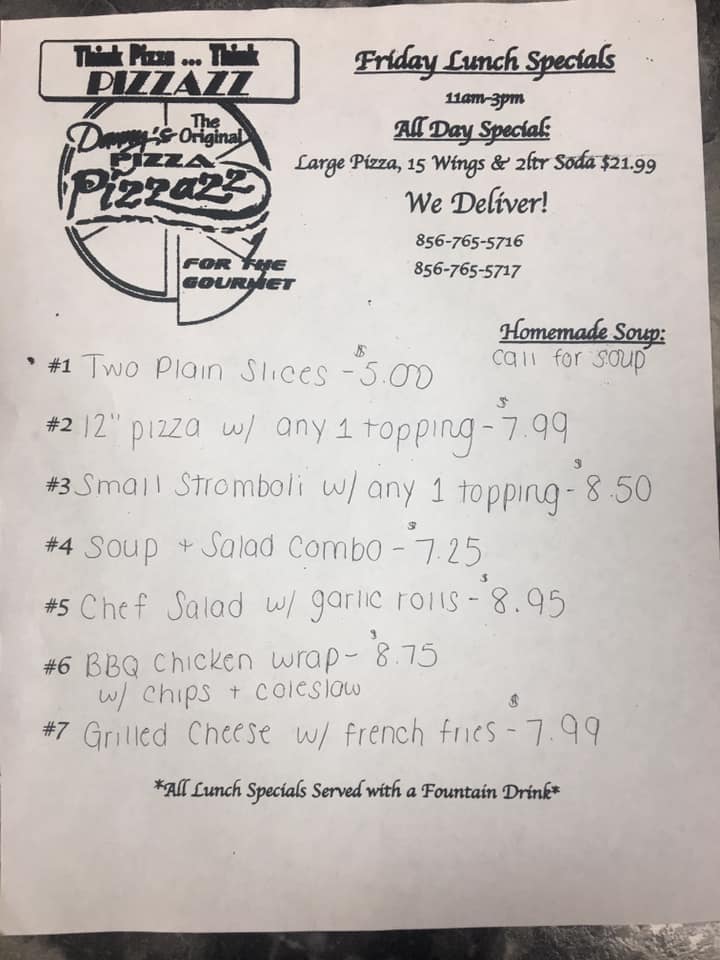 Think Pizza ... Think
PIZZAZZ
The
Danny's Original
PIZZA
Pizzazz
FOR THE
GOURMET
Friday Lunch Specials
11am-3pm
All Day Special:
Large Pizza, 15 Wings & 2ltr Soda $21.99
We Deliver!
856-765-5716
856-765-5717
Homemade Soup:
call for soup
#1 Two Plain Slices - $5.00
#2 12" pizza w/ any 1 topping - $7.99
#3 Small Stromboli w/ any 1 topping - $8.50
#4 Soup + Salad Combo - $7.25
#5 Chef Salad w/ garlic rolls - $8.95
#6 BBQ Chicken wrap - $8.75
w/ chips + coleslaw
#7 Grilled Cheese w/ french fries - $7.99
*All Lunch Specials Served with a Fountain Drink*